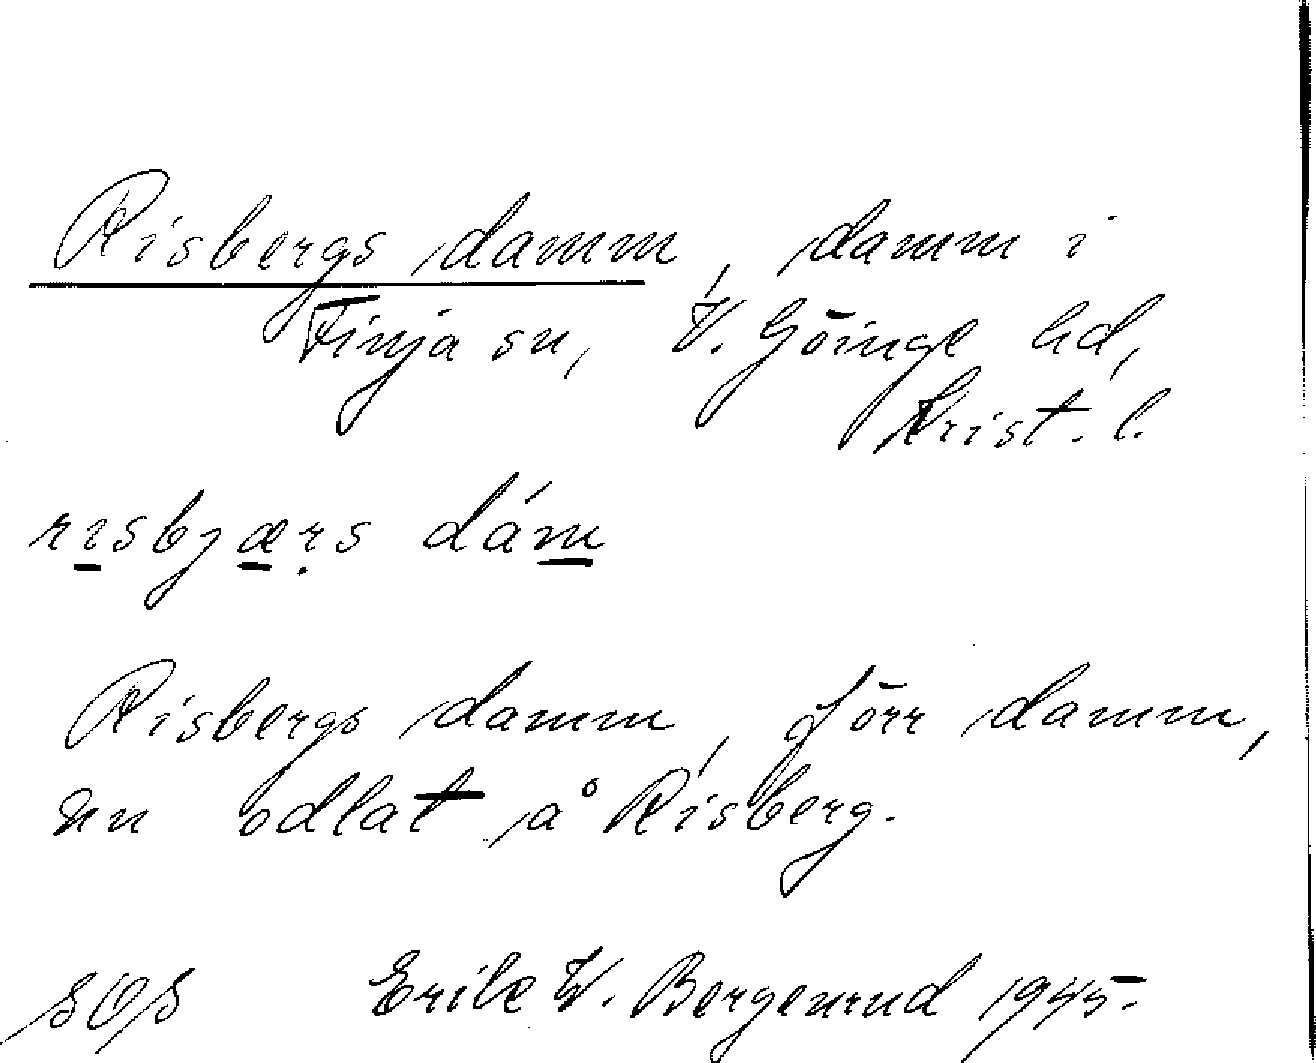 Risbergs damm, damm i
Finja sn, V. Göinge hd,
Krist. l.
risbjærs dám
Risbergs damm, förr damm,
nu odlat å Risberg.
Erik W. Bergenrud 1945.